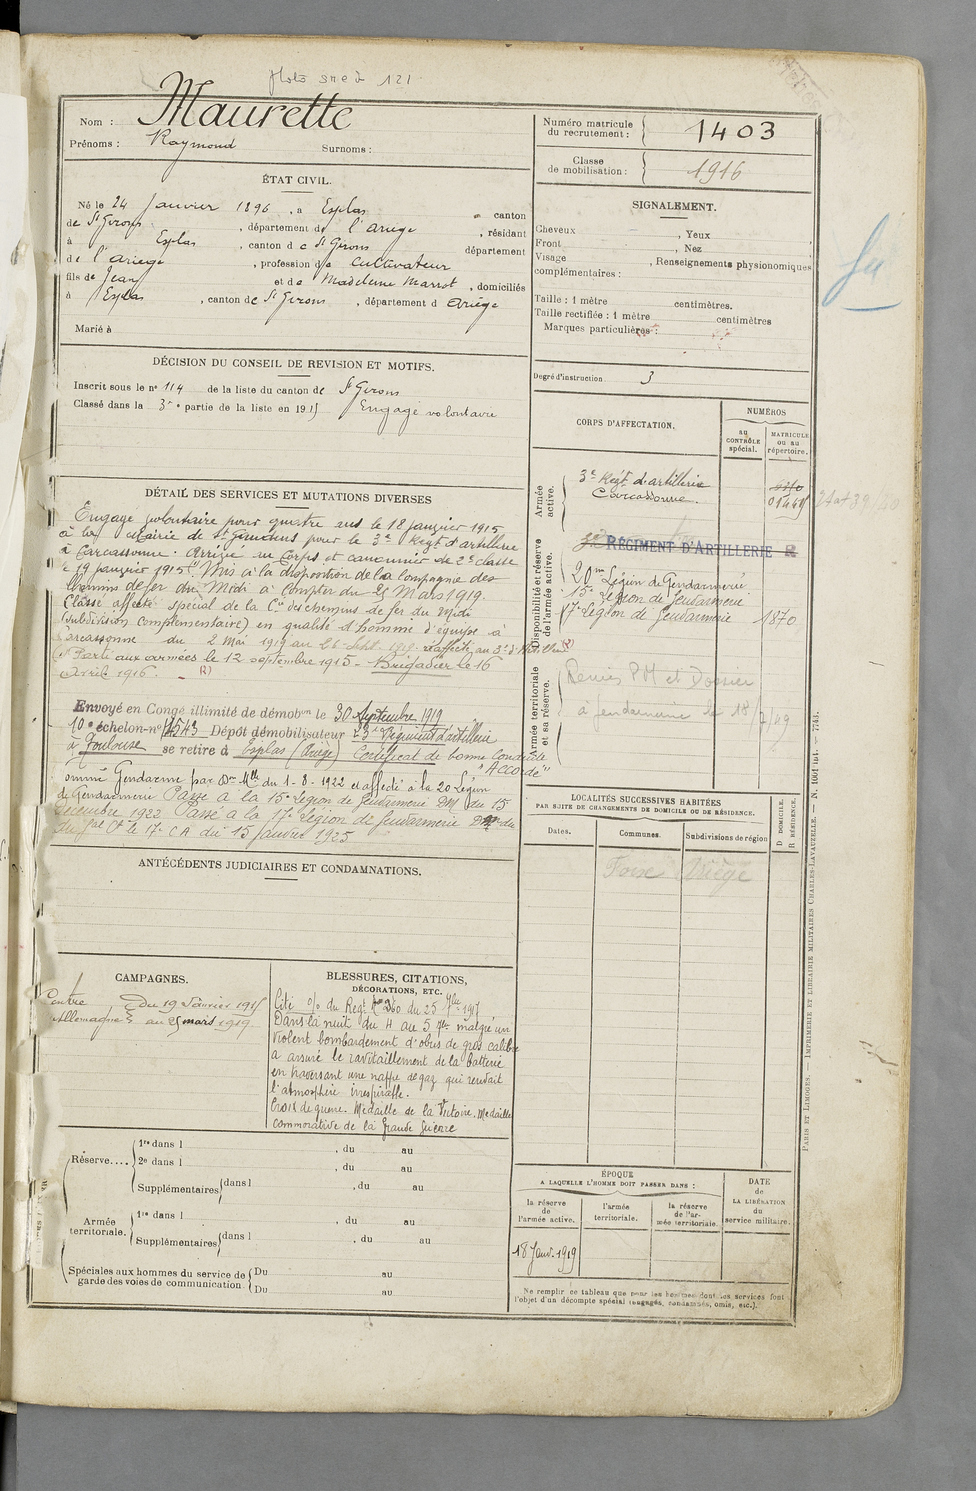 Nom : Maurette
Prénoms : Raymond Surnoms :
Numéro matricule du recrutement : 1403
Classe de mobilisation : 1916
ÉTAT CIVIL.
Né le 24 Janvier 1896, à Esplas canton
de St Girons, département de l'Ariège, résidant
à Esplas, canton de St Girons département
de l'Ariège, profession de Cultivateur
fils de Jean et de Madeleine Marrot, domiciliés
à Esplas, canton de St Girons, département d Ariège
Marié à
SIGNALEMENT.
Cheveux , Yeux
Front , Nez
Visage , Renseignements physionomiques
complémentaires :
Taille : 1 mètre centimètres.
Taille rectifiée : 1 mètre centimètres
Marques particulières :
Degré d'instruction 3
DÉCISION DU CONSEIL DE REVISION ET MOTIFS.
Inscrit sous le no 114 de la liste du canton de St Girons
Classé dans la 3e partie de la liste en 1915 Engagé volontaire
CORPS D'AFFECTATION.
NUMÉROS
au CONTRÔLE spécial.
MATRICULE ou au répertoire.
Armée active.
3e Régt d'artillerie
Carcassonne.
Disponibilité et réserve de l'armée active.
3e RÉGIMENT D'ARTILLERIE
20me Légion de Gendarmerie
15e Légion de Gendarmerie
17e Légion de Gendarmerie 1870
Armée territoriale et sa réserve.
Remis PM et Dossier
à gendarmerie le 18/7/49
DÉTAIL DES SERVICES ET MUTATIONS DIVERSES
Engagé volontaire pour quatre ans le 18 janvier 1915
à la Mairie de St Gaudens pour le 3e Régt d'artillerie
à Carcassonne. Arrivé au Corps et canonnier de 2e classe
le 19 janvier 1915. Mis à la disposition de la Compagne des
Chemins de fer du Midi à compter du 25 Mars 1919.
Classé affecté spécial de la Cie des chemins de fer du Midi
(subdivision complémentaire) en qualité d'homme d'équipe à
Carcassonne du 2 Mai 1919 au 26 Sept. 1919. réaffecté au 3e d'Artillerie
Parti aux armées le 12 septembre 1915 - Brigadier le 16
Avril 1916.
Envoyé en Congé illimité de démobon le 30 Septembre 1919
10e échelon no 4543 Dépôt démobilisateur Régiment d'artillerie
à Toulouse se retire à Esplas (Ariège) Certificat de bonne Conduite
"Accordé"
ommé Gendarme par Don Mlle du 1-8-1922 et affecté à la 20 Légion
de Gendarmerie Passé à la 15e Légion de Gendarmerie DM du 15
Décembre 1922 Passé à la 17e Légion de Gendarmerie du
Gal Ct le 17e CA du 15 janvier 1925
LOCALITÉS SUCCESSIVES HABITÉES
PAR SUITE DE CHANGEMENTS DE DOMICILE OU DE RÉSIDENCE.
Dates. Communes. Subdivisions de région D DOMICILE. R RÉSIDENCE.
Ariège
ANTÉCÉDENTS JUDICIAIRES ET CONDAMNATIONS.
CAMPAGNES.
Contre Allemagne du 19 Janvier 1915
au 25 mars 1919
BLESSURES, CITATIONS,
DÉCORATIONS, ETC.
Cité o/o du Regt No 360 du 25 7bre 1917
Dans la nuit du 4 au 5 7bre malgré un
violent bombardement d'obus de gros calibre
a assuré le ravitaillement de la batterie
en traversant une nappe de gaz qui rendait
l'atmosphère irrespirable.
Croix de guerre. Médaille de la Victoire. Médaille
commorative de la Grande Guerre
Réserve.... 1re dans l , du au
2e dans l , du au
Supplémentaires dans l , du au
Armée territoriale. 1re dans l , du au
Supplémentaires dans l , du au
Spéciales aux hommes du service de garde des voies de communication. Du au
Du au
ÉPOQUE
A LAQUELLE L'HOMME DOIT PASSER DANS :
la réserve de l'armée active.
l'armée territoriale.
la réserve de l'armée territoriale.
DATE de LA LIBÉRATION du service militaire.
18 Janv. 1919
Ne remplir ce tableau que pour les hommes dont les services font
l'objet d'un décompte spécial (engagés, condamnés, omis, etc.).
PARIS ET LIMOGES. — IMPRIMERIE ET LIBRAIRIE MILITAIRES CHARLES-LAVAUZELLE.